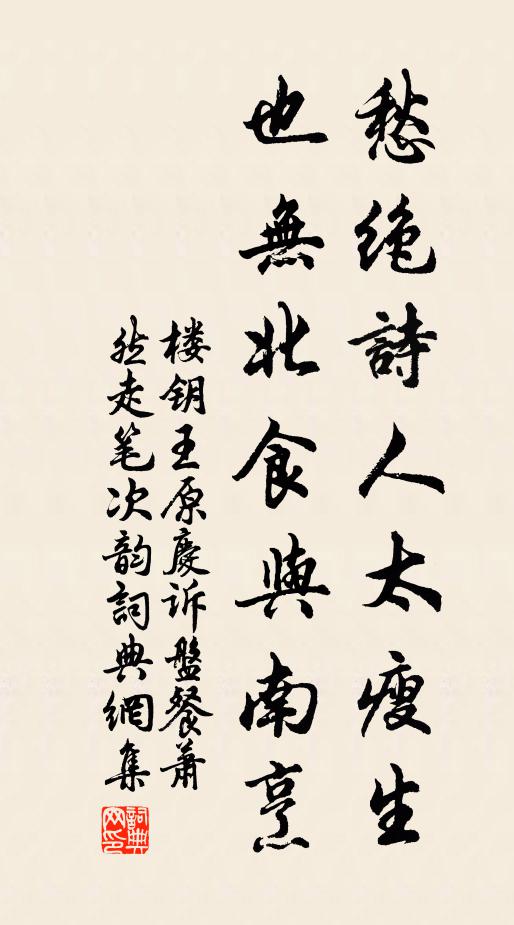 愁绝詩人太瘦生
也無北食與南烹
楼钥王原慶诉盤餐萧
然走笔次韵詞典網集
詞典
网印